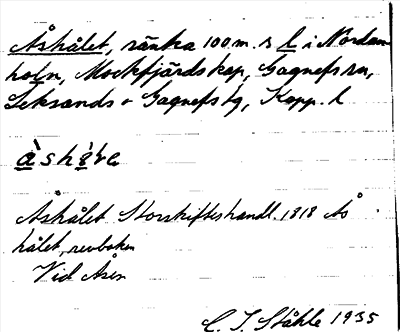 Åshålet, ränka 100 m. s l i Nordan
holn, Mockfjärds kap, Gagnefs sn,
Leksands o Gagnefs tg, Kopp. l
Åshålet Storskifteshandl. 1818 Ås
hålet, revboken
Vid Åsen
C. I. Ståhle 1935